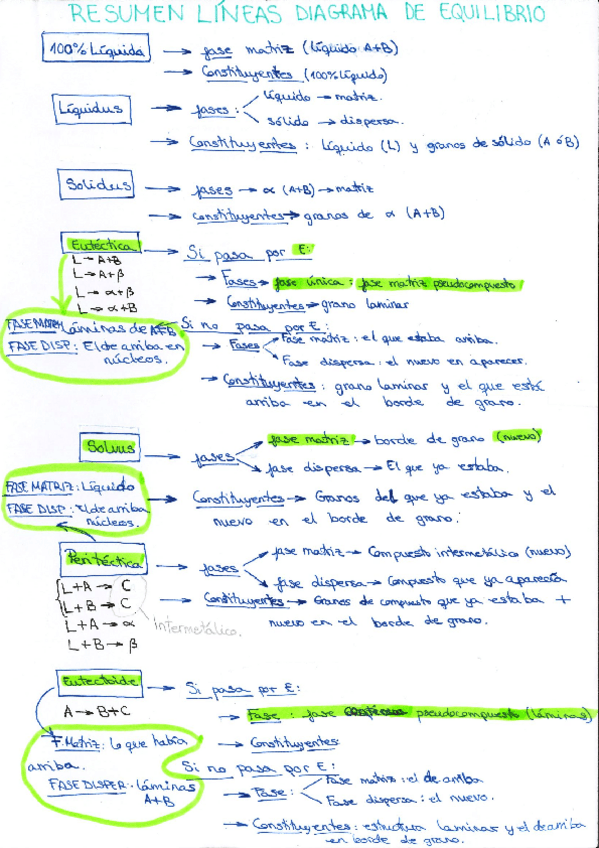 RESUMEN LÍNEAS DIAGRAMA DE EQUILIBRIO
100% Líquida → fase matriz (Líquido A+B)
→ Constituyentes (100% Líquido)
Líquidus → fases: líquido → matriz.
sólido → dispersa.
→ Constituyentes: Líquido (L) y granos de sólido (A ó B)
Solidus → fases → α (A+B) → matriz
→ Constituyentes → granos de α (A+B)
Eutéctica → Si pasa por E:
L → A+B
L → A+β
L → α+β
L → α+B
→ Fases → fase única: fase matriz pseudocompuesto
→ Constituyentes → grano laminar
FASE MATR: Láminas de A+B
FASE DISP: El de arriba en
núcleos.
Si no pasa por E:
→ Fases → Fase matriz: el que estaba arriba.
Fase dispersa: el nuevo en aparecer.
→ Constituyentes: grano laminar y el que está
arriba en el borde de grano.
Solvus → fases: fase matriz → borde de grano (nuevo)
fase dispersa → El que ya estaba.
FASE MATRIZ: Líquido
FASE DISP: El de arriba
núcleos.
→ Constituyentes → Granos del que ya estaba y el
nuevo en el borde de grano.
Peritéctica → fases → fase matriz → Compuesto intermetálico (nuevo)
fase dispersa → Compuesto que ya aparecía
L+A → C
L+B → C
L+A → α
L+B → β
Intermetálico.
→ Constituyentes → Granos de compuesto que ya estaba +
nuevo en el borde de grano.
Eutectoide → Si pasa por E:
A → B+C
→ Fase: fase pseudocompuesto (láminas)
→ Constituyentes
F. Matriz: lo que había
arriba.
FASE DISPER: láminas
A+B
Si no pasa por E:
→ Fase: Fase matriz: el de arriba
Fase dispersa: el nuevo.
→ Constituyentes: estructura laminar y el de arriba
en borde de grano.